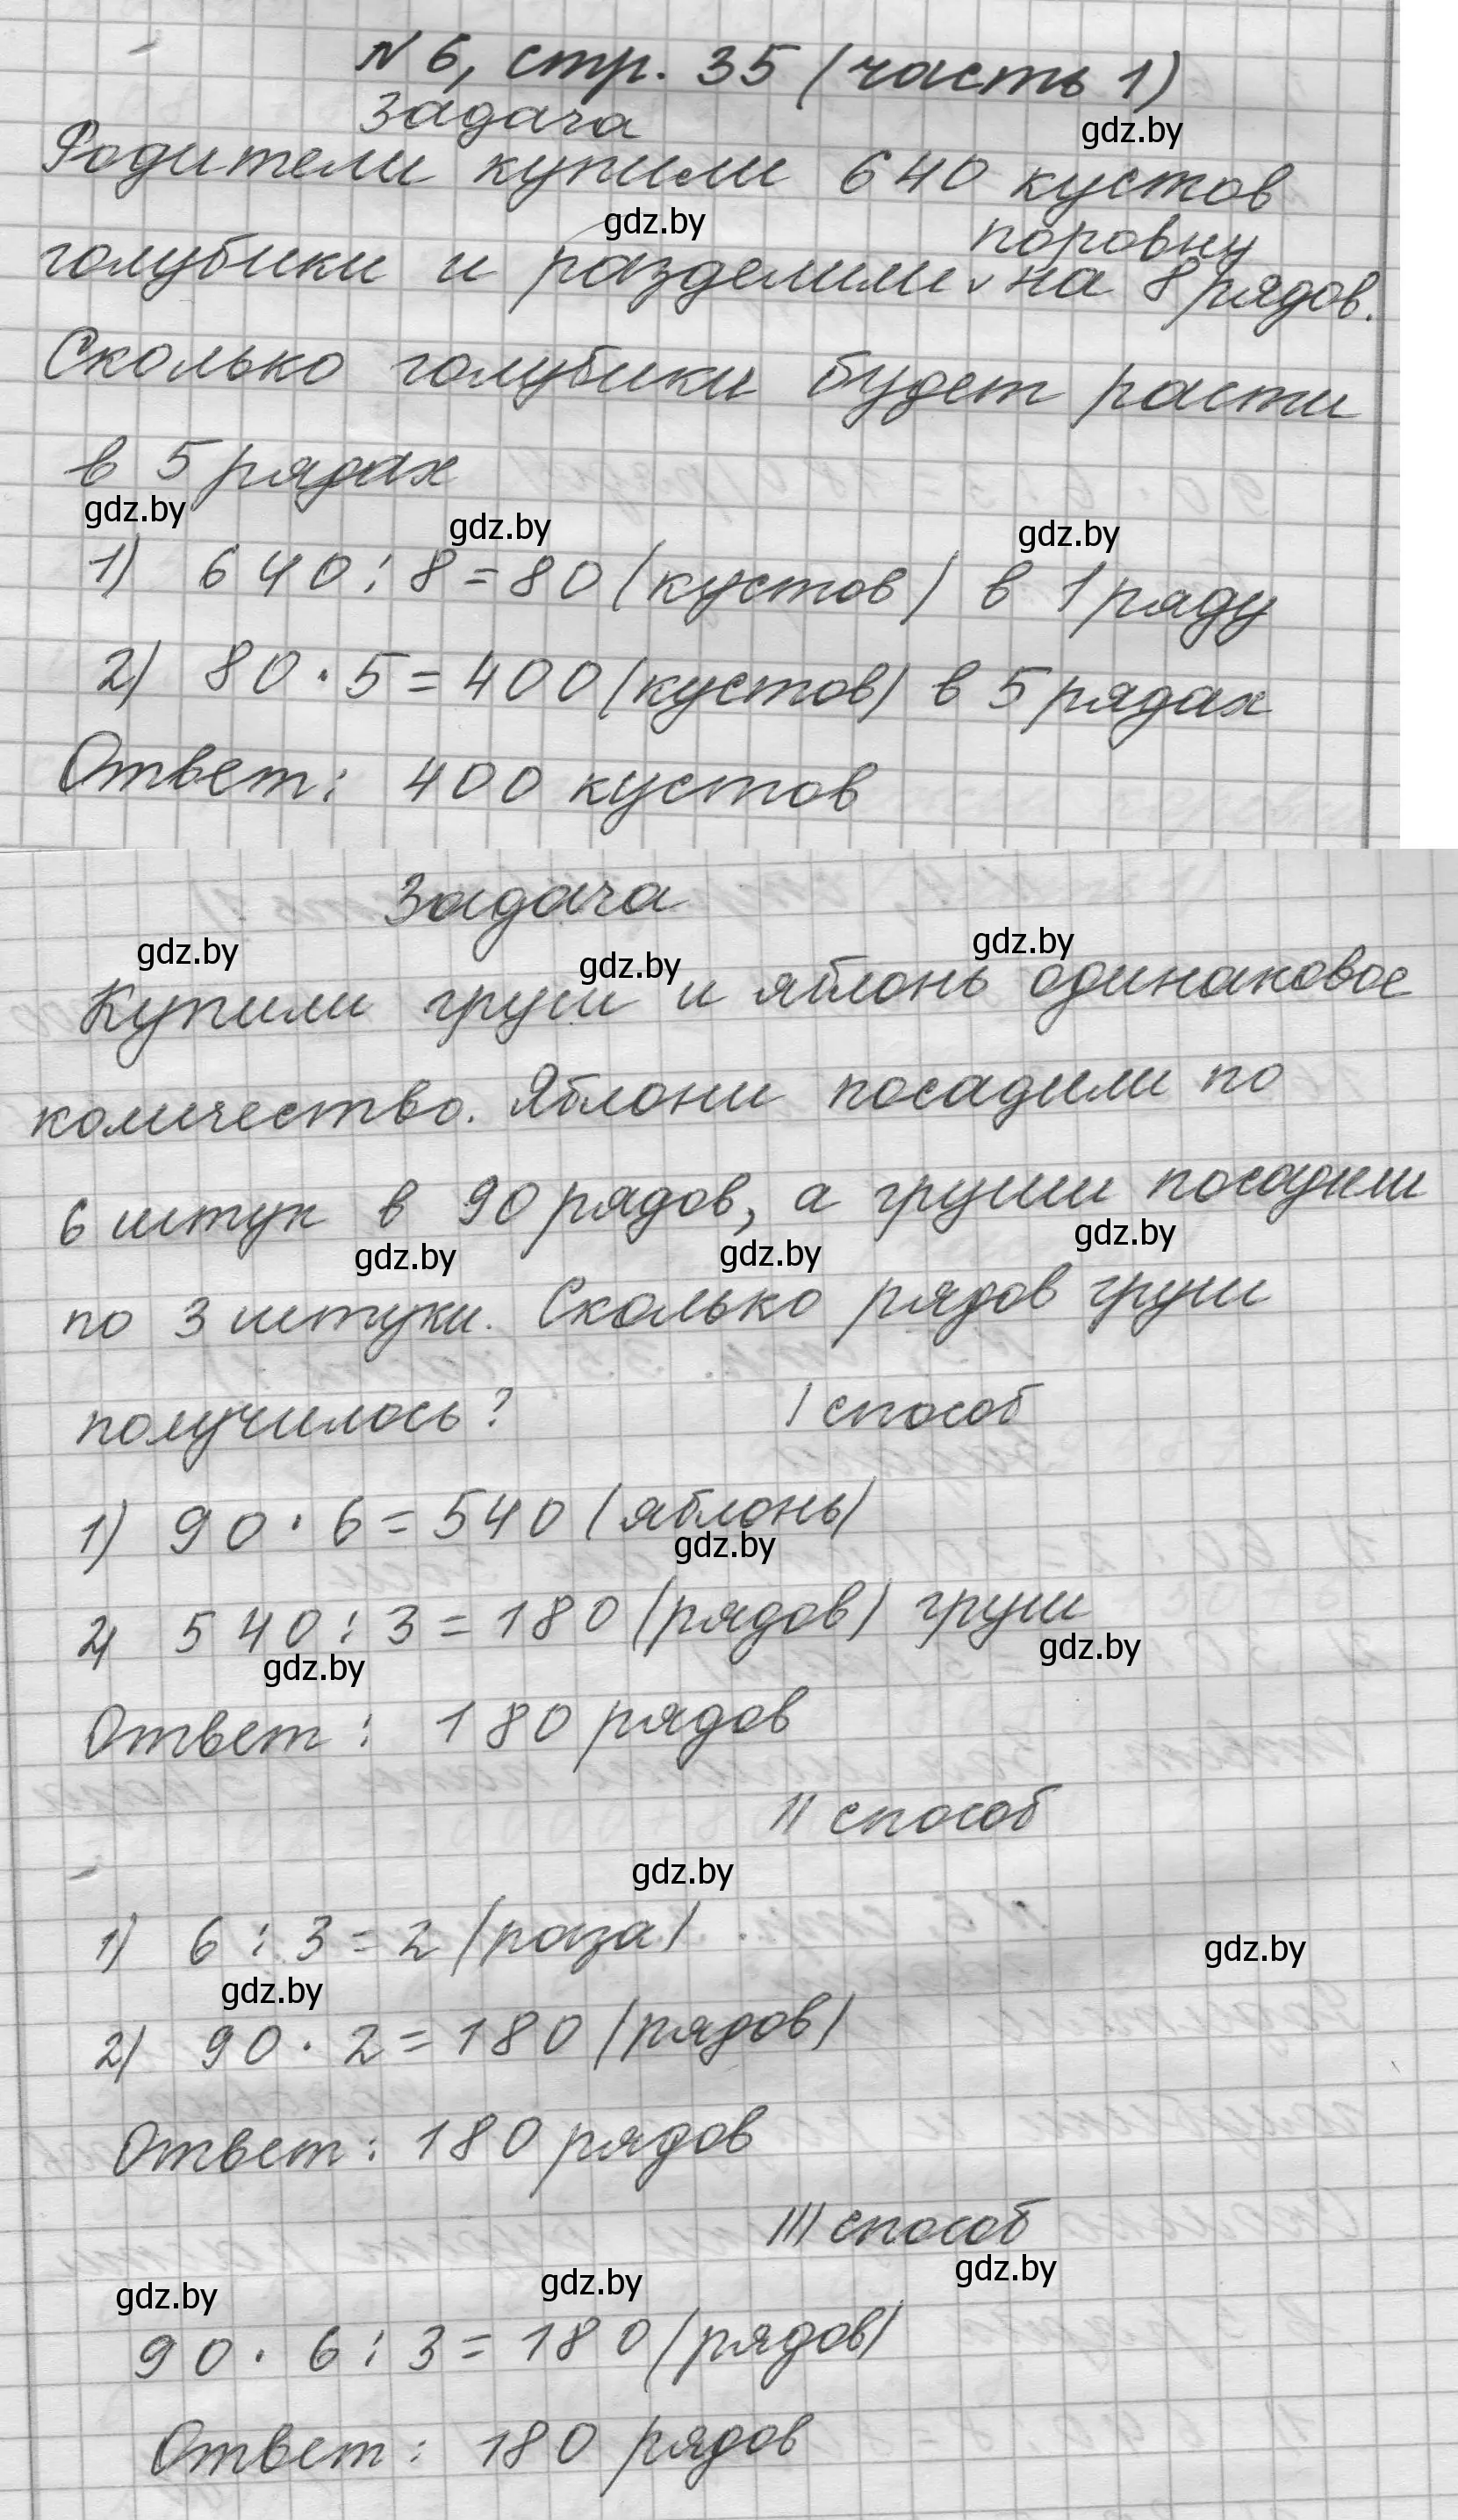 № 6, стр. 35 (часть 1)
Задача
gdz.by
Родители купили 640 кустов
gdz.by
поровну
голубики и разделили ˅ на 8 рядов.
Сколько голубики будет расти
в 5 рядах
gdz.by gdz.by gdz.by
1) 640 : 8 = 80 (кустов) в 1 ряду
2) 80 · 5 = 400 (кустов) в 5 рядах
Ответ: 400 кустов
Задача
gdz.by gdz.by gdz.by
Купили груш и яблонь одинаковое
количество. Яблони посадили по
6 штук в 90 рядов, а груши посадили
gdz.by gdz.by gdz.by
по 3 штуки. Сколько рядов груш
получилось? I способ
1) 90 · 6 = 540 (яблонь)
gdz.by
2) 540 : 3 = 180 (рядов) груш
gdz.by gdz.by
Ответ: 180 рядов
II способ
gdz.by
1) 6 : 3 = 2 (раза)
gdz.by
gdz.by
2) 90 · 2 = 180 (рядов)
Ответ: 180 рядов
III способ
gdz.by gdz.by gdz.by
90 · 6 : 3 = 180 (рядов)
Ответ: 180 рядов